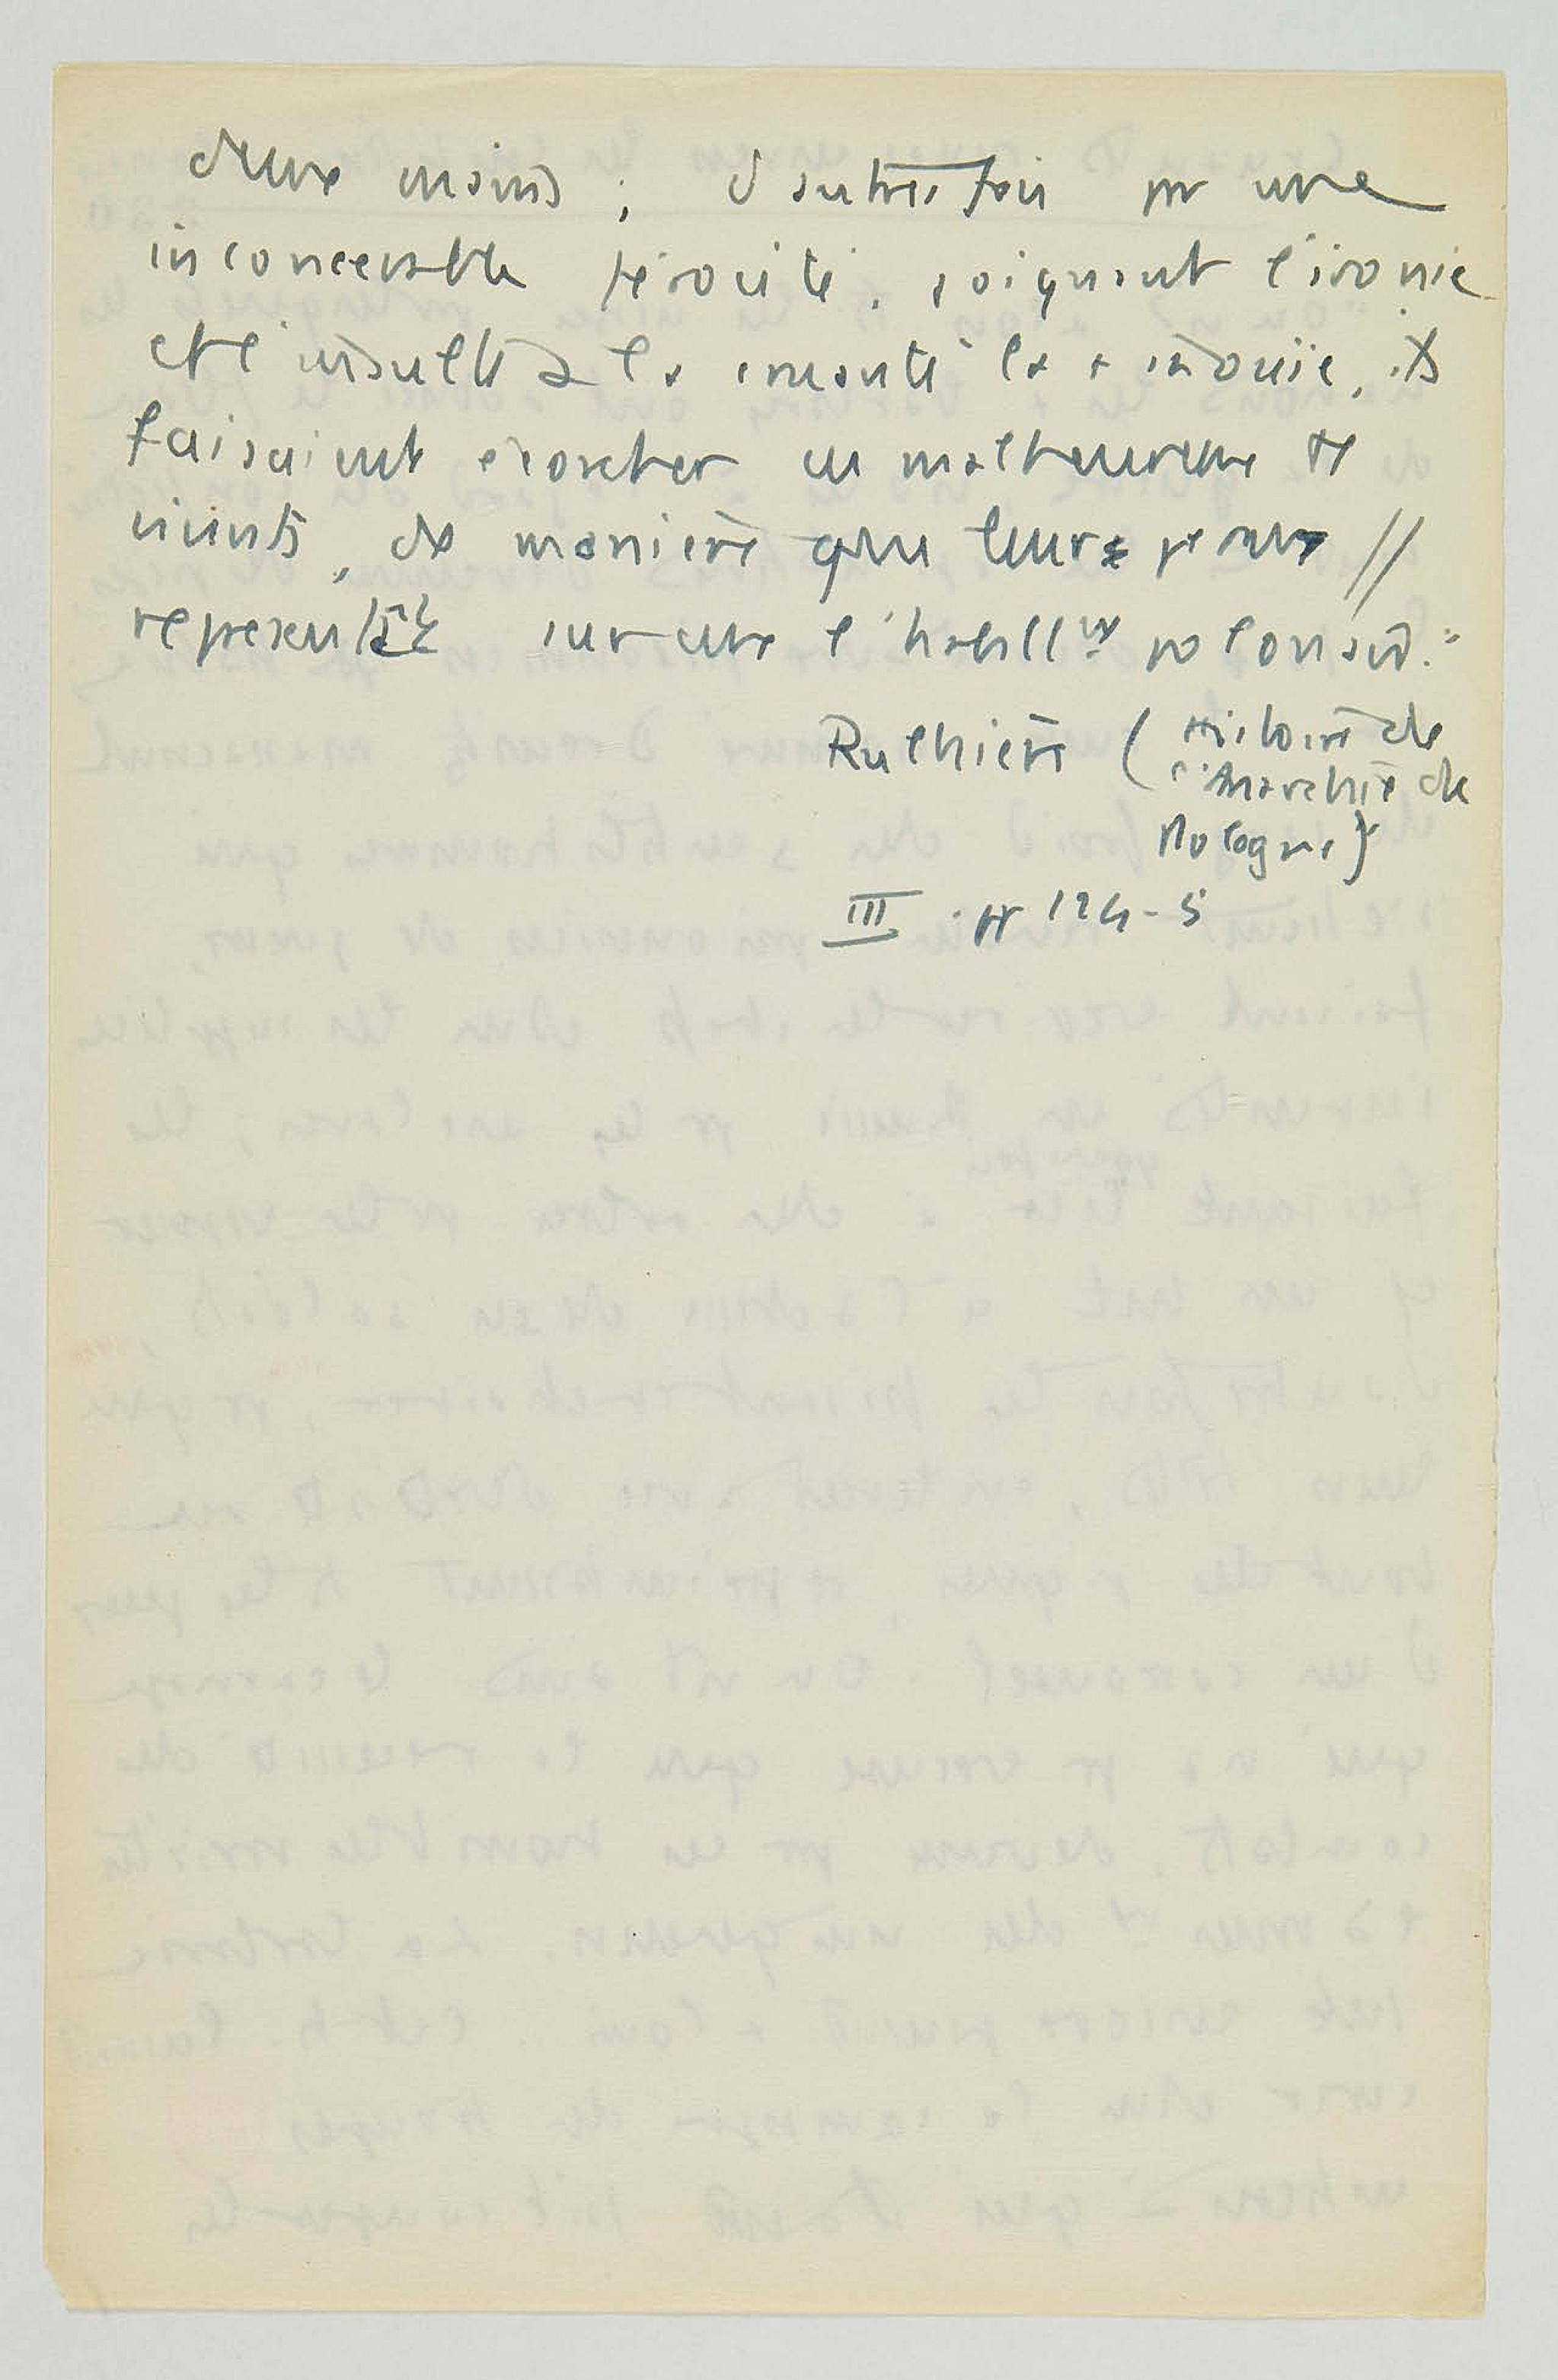 deux mains ; d'autres fois par une
inconcevable férocité, joignant l'ironie
et l'insulte à la cruauté la + inouïe, ils
faisaient écorcher ces malheureux tt
vivants, de manière que leurs peaux //
représentât sur eux l'habillt polonais."
Rulhière (Histoire de
l'Anarchie de
Pologne)
III. pp 124-5